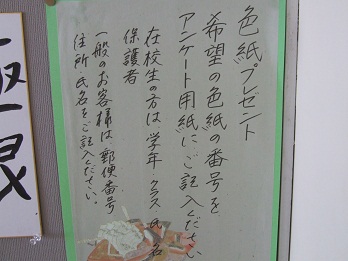 色紙プレゼント
希望の色紙の番号を
アンケート用紙にご記入ください
在校生の方は学年 クラス 氏名
保護者
一般のお客様は、郵便番号
住所・氏名をご記入ください。